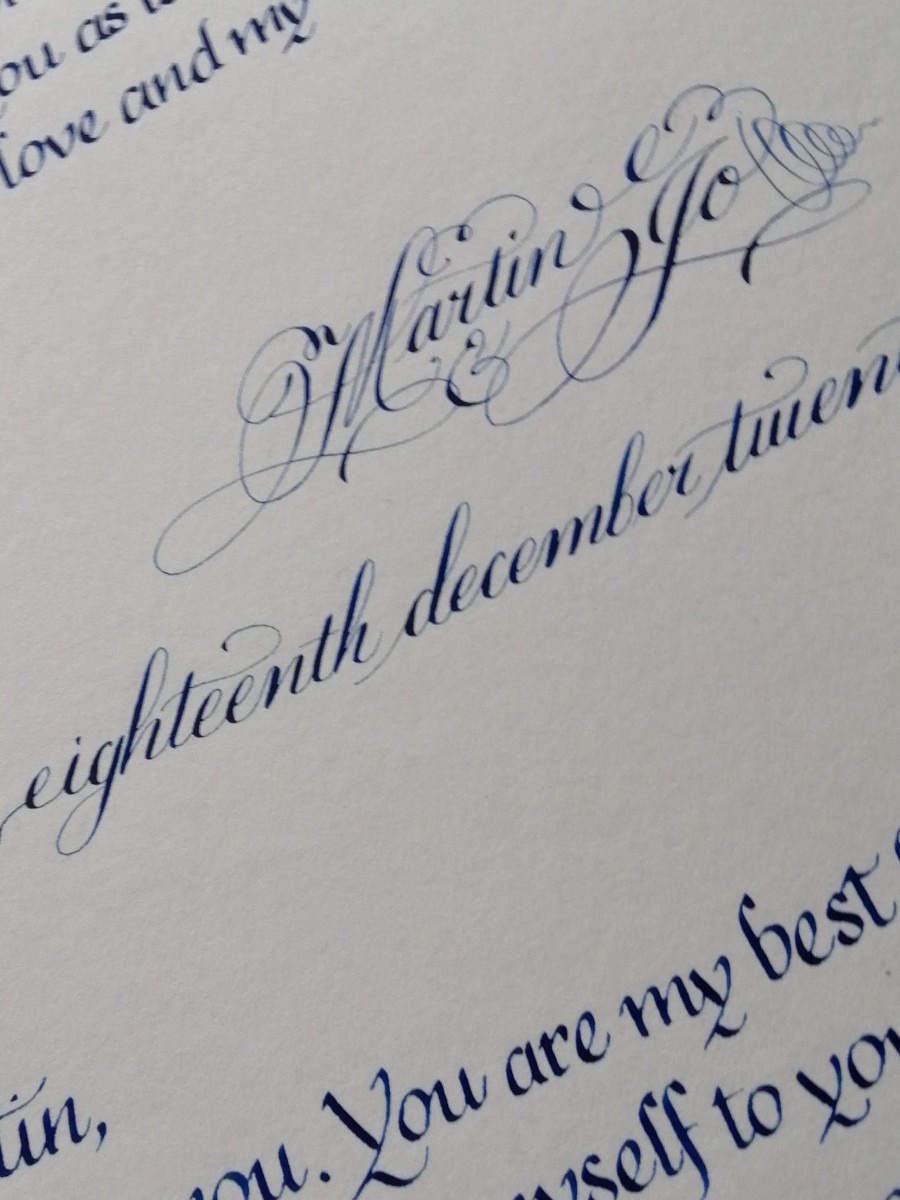 ou as
love and my
Martin
& Jo
eighteenth december twen
tin,
you. You are my best
yself to you